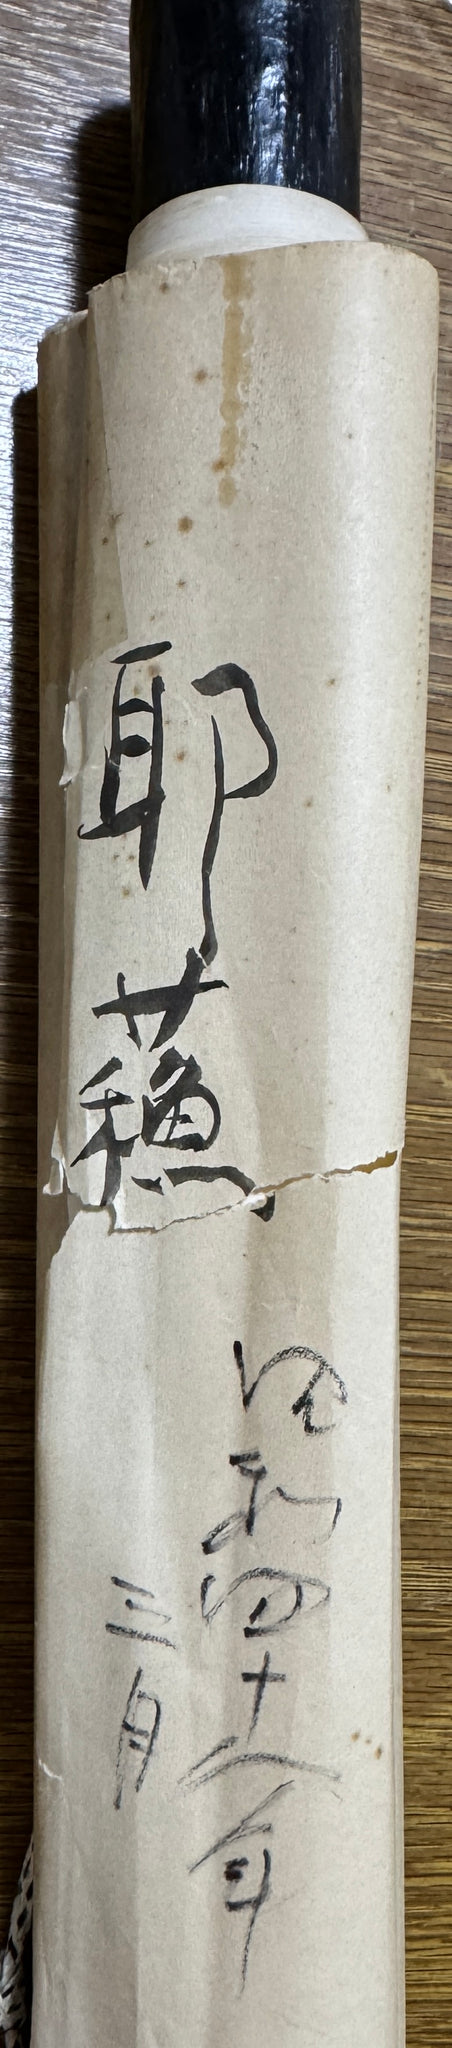 耶蘓
昭和四十八年
三月